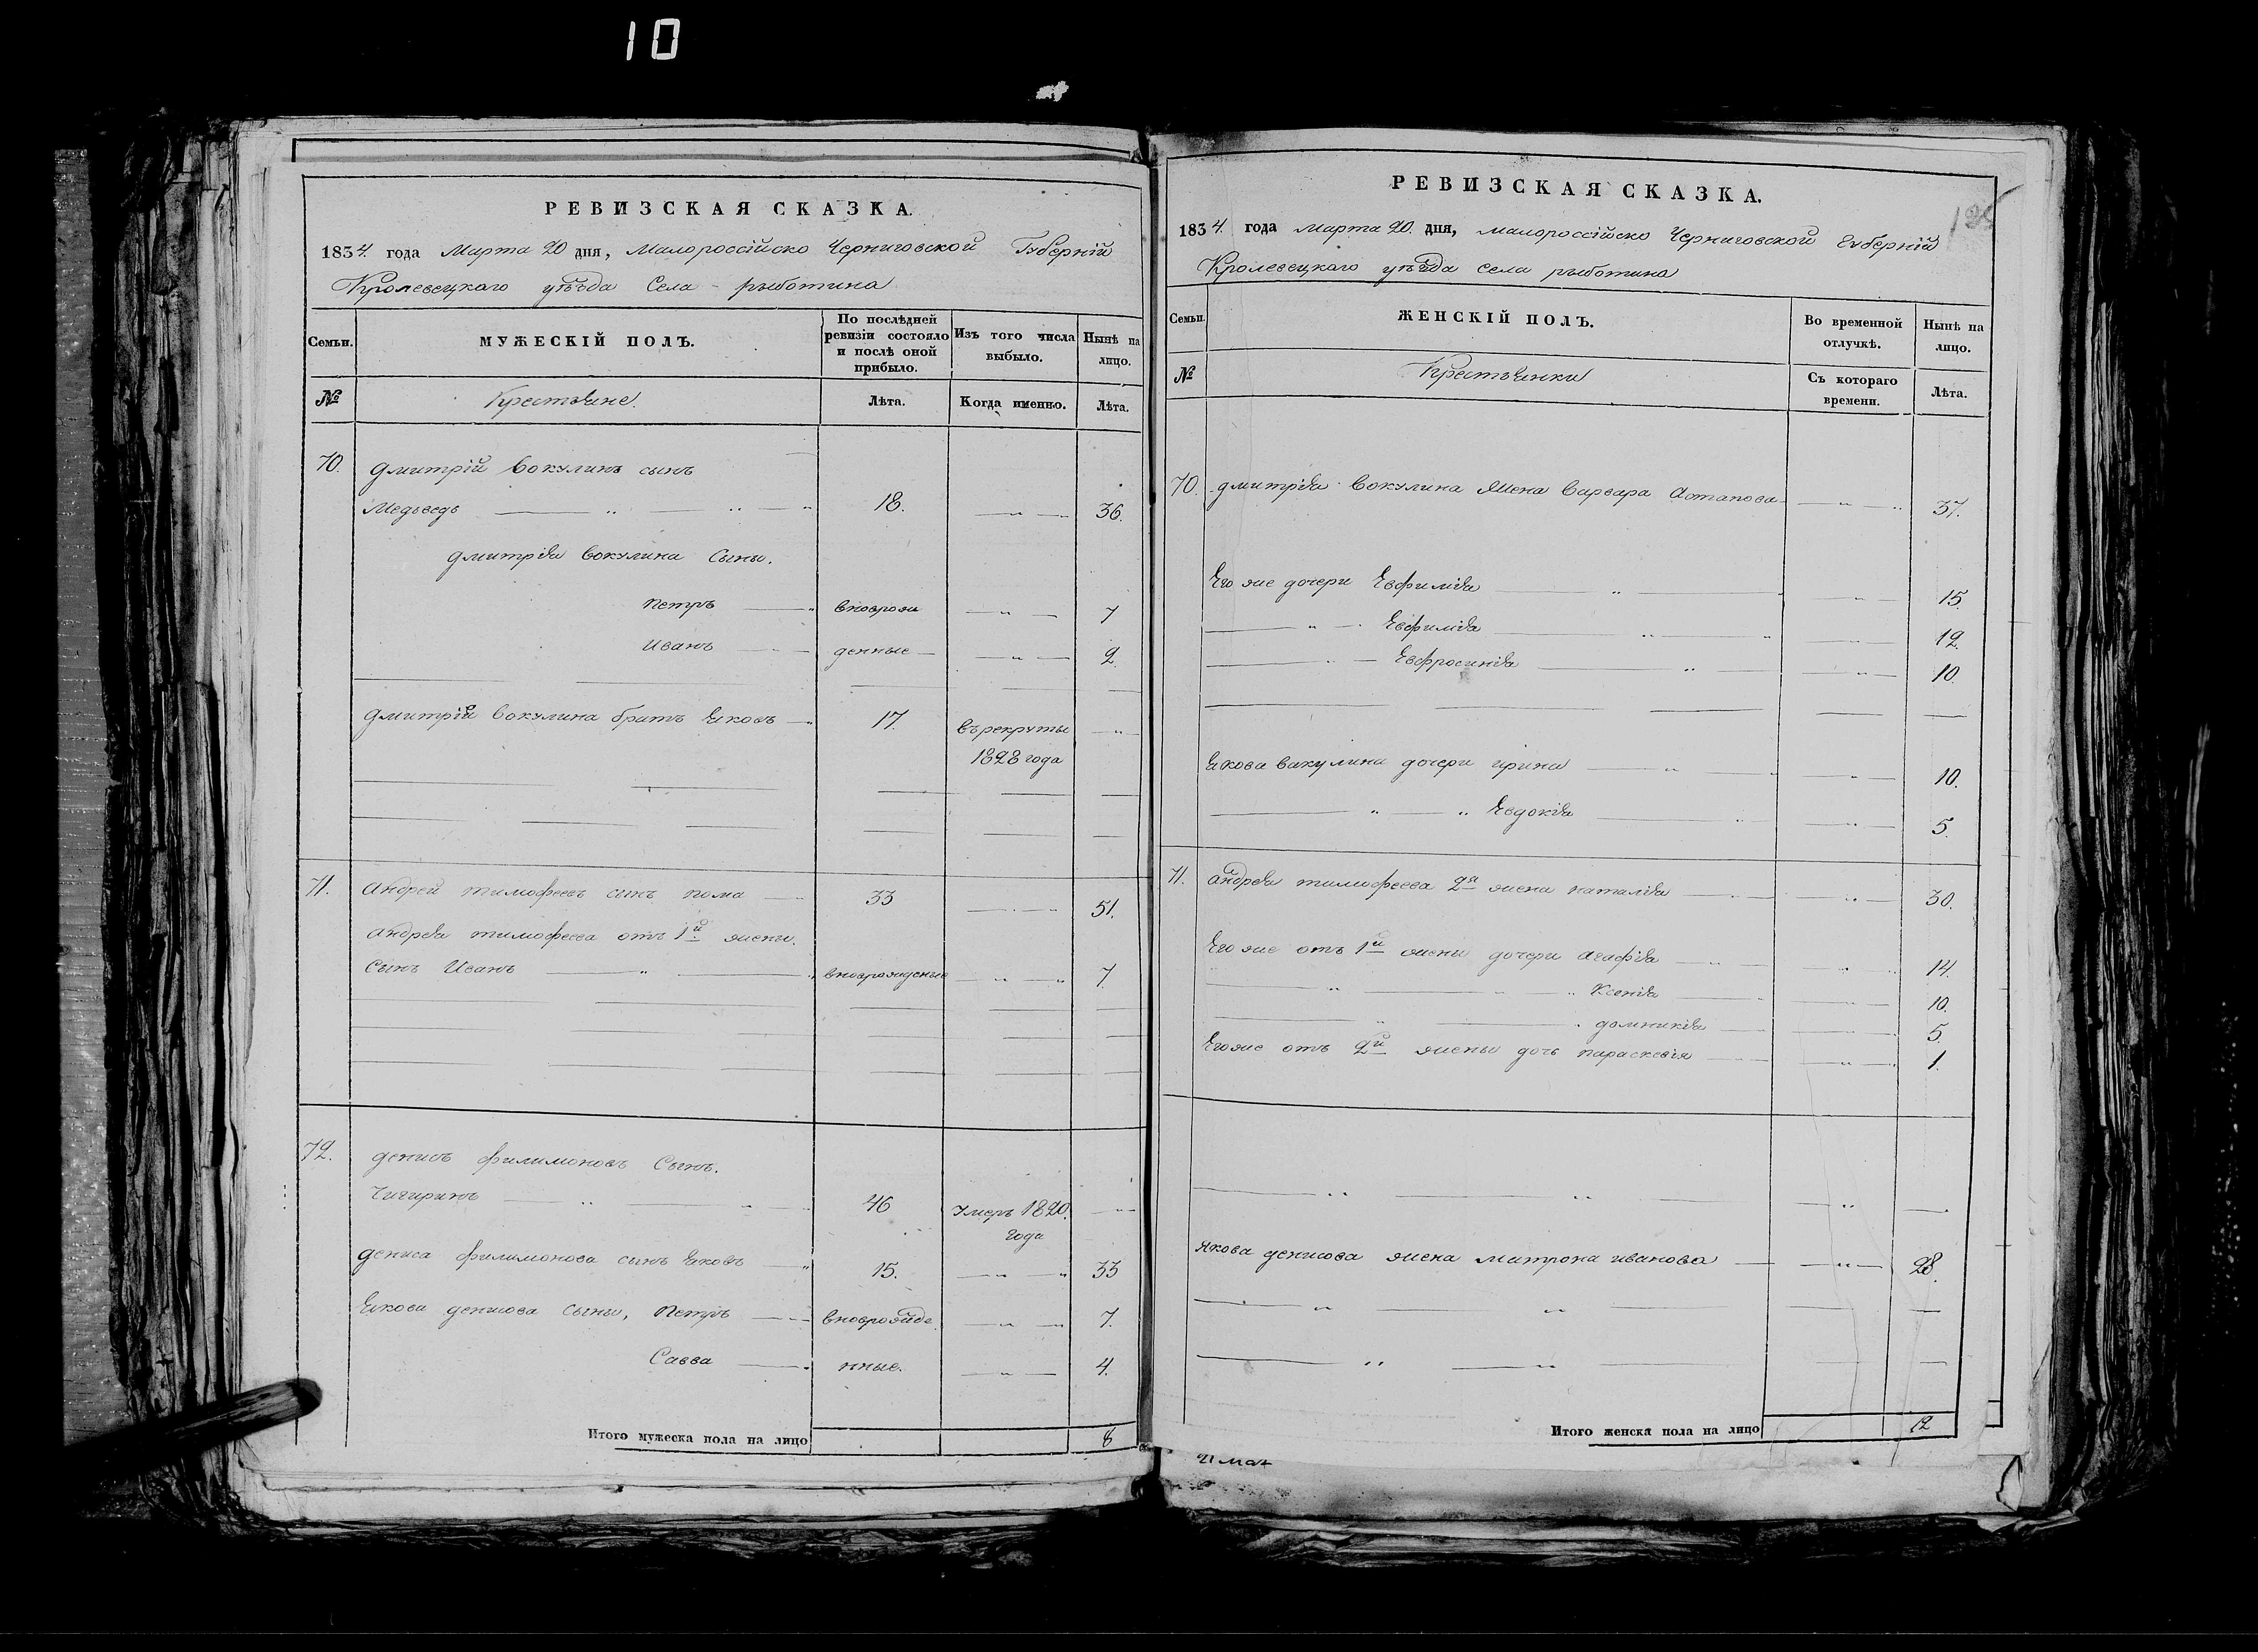 10
РЕВИЗСКАЯ СКАЗКА.
1834. года Марта 20 дня, Малороссійско Черниговской Губерній
Кролевецкаго уѣзда Села - рыботина
Семьи.
МУЖЕСКІЙ ПОЛЪ.
По послѣдней ревизіи состояло и послѣ оной прибыло.
Изъ того числа выбыло.
Нынѣ на лицо.
№
Крестьяне.
Лѣта.
Когда именно.
Лѣта.
70. Дмитрій Вокулинъ сынъ
Медьведь 18. 36.
Дмитрія Вокулина Сыны.
Петръ вноврож 7
Иванъ денные 2.
Дмитрій Вокулина братъ Яковъ 17. Въ рекруты
1828 года
71. Андрей тимофеевъ сынъ пома 33 51.
Андрея тимофеева отъ 1й жены.
Сынъ Иванъ вноврожденые 7.
72. Денисъ филимоновъ Сынъ.
Чигиринъ 46 Умеръ 1820.
года
Дениса филимонова сынъ Яковъ 15. 33
Якова денисова Сыны, Петръ вноврожде 7.
Савва нные. 4.
Итого мужеска пола на лицо 8
РЕВИЗСКАЯ СКАЗКА.
1834. года Марта 20. дня, Малороссійско Черниговской Губерній
Кролевецкаго уѣзда Села рыботина
Семьи.
ЖЕНСКІЙ ПОЛЪ.
Во временной отлучкѣ.
Нынѣ на лицо.
№
Крестьянки
Съ котораго времени.
Лѣта.
70. Дмитрія Вокулина Жена Варвара Астапова 37.
Его же дочери Евфимія 15.
Евфимія 12.
Евфросинія 10.
Якова вакулина дочери ирина 10.
Евдокія 5.
71. андрея тимофеева 2я жена наталія 30.
Его же отъ 1й жены дочери агафія 14.
Ксенія 10.
домникія 5.
Его же отъ 2й жены дочь параскевія 1.
Якова денисова жена матрона иванова 28.
Итого женска пола на лицо 12